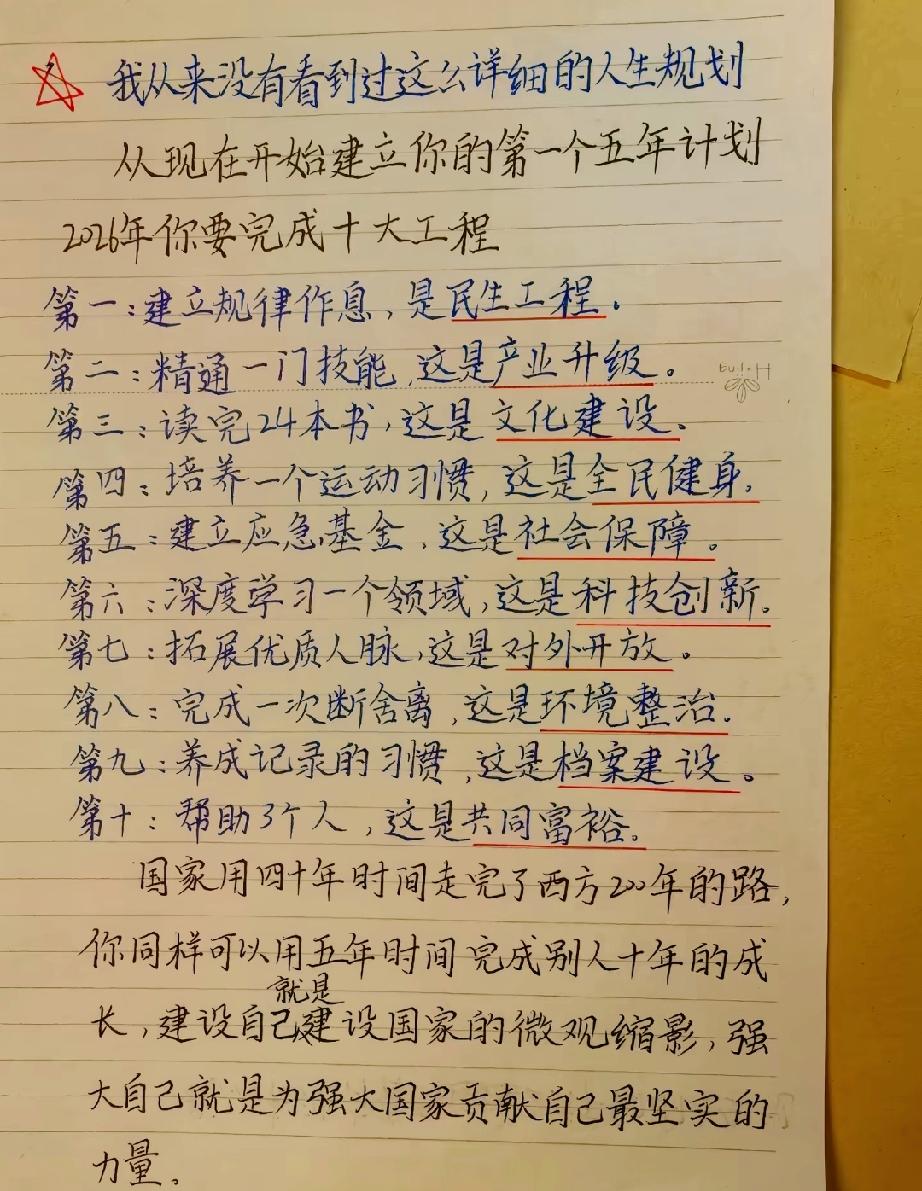 我从来没有看到过这么详细的人生规划
从现在开始建立你的第一个五年计划
2026年你要完成十大工程
第一：建立规律作息，是民生工程。
第二：精通一门技能，这是产业升级。
第三：读完24本书，这是文化建设。
第四：培养一个运动习惯，这是全民健身。
第五：建立应急基金，这是社会保障。
第六：深度学习一个领域，这是科技创新。
第七：拓展优质人脉，这是对外开放。
第八：完成一次断舍离，这是环境整治.
第九：养成记录的习惯，这是档案建设。
第十：帮助3个人，这是共同富裕。
国家用四十年时间走完了西方200年的路，
你同样可以用五年时间完成别人十年的成
长，建设自己就是建设国家的微观缩影，强
大自己就是为强大国家贡献自己最坚实的
力量。